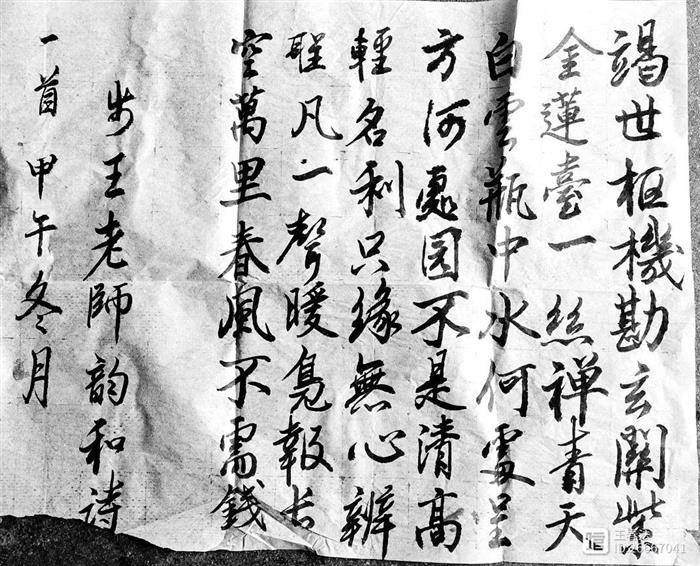 竭世枢機勘玄關紫
金蓮臺一絲禅青天
白雲瓶中水何處呈
方何處圆不是清高
輕名利只緣無心辨
聖凡一聲暖鳬報长
空萬里春風不需錢
步王老師韵和诗
一首甲午冬月